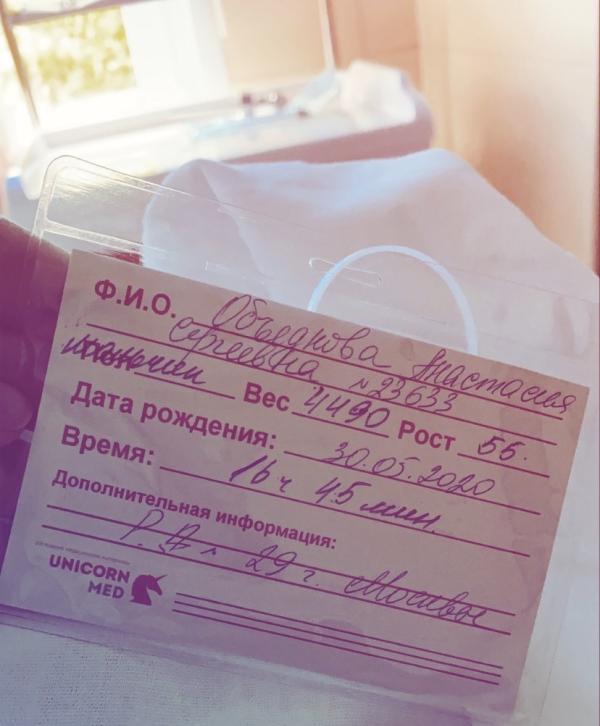 Ф.И.О. Объедкова Анастасия
Сергеевна №23633
Вес 4490 Рост 55.
Дата рождения: 30.05.2020
Время: 16 ч 45 мин.
Дополнительная информация:
29 г. Москвы
UNICORN
MED